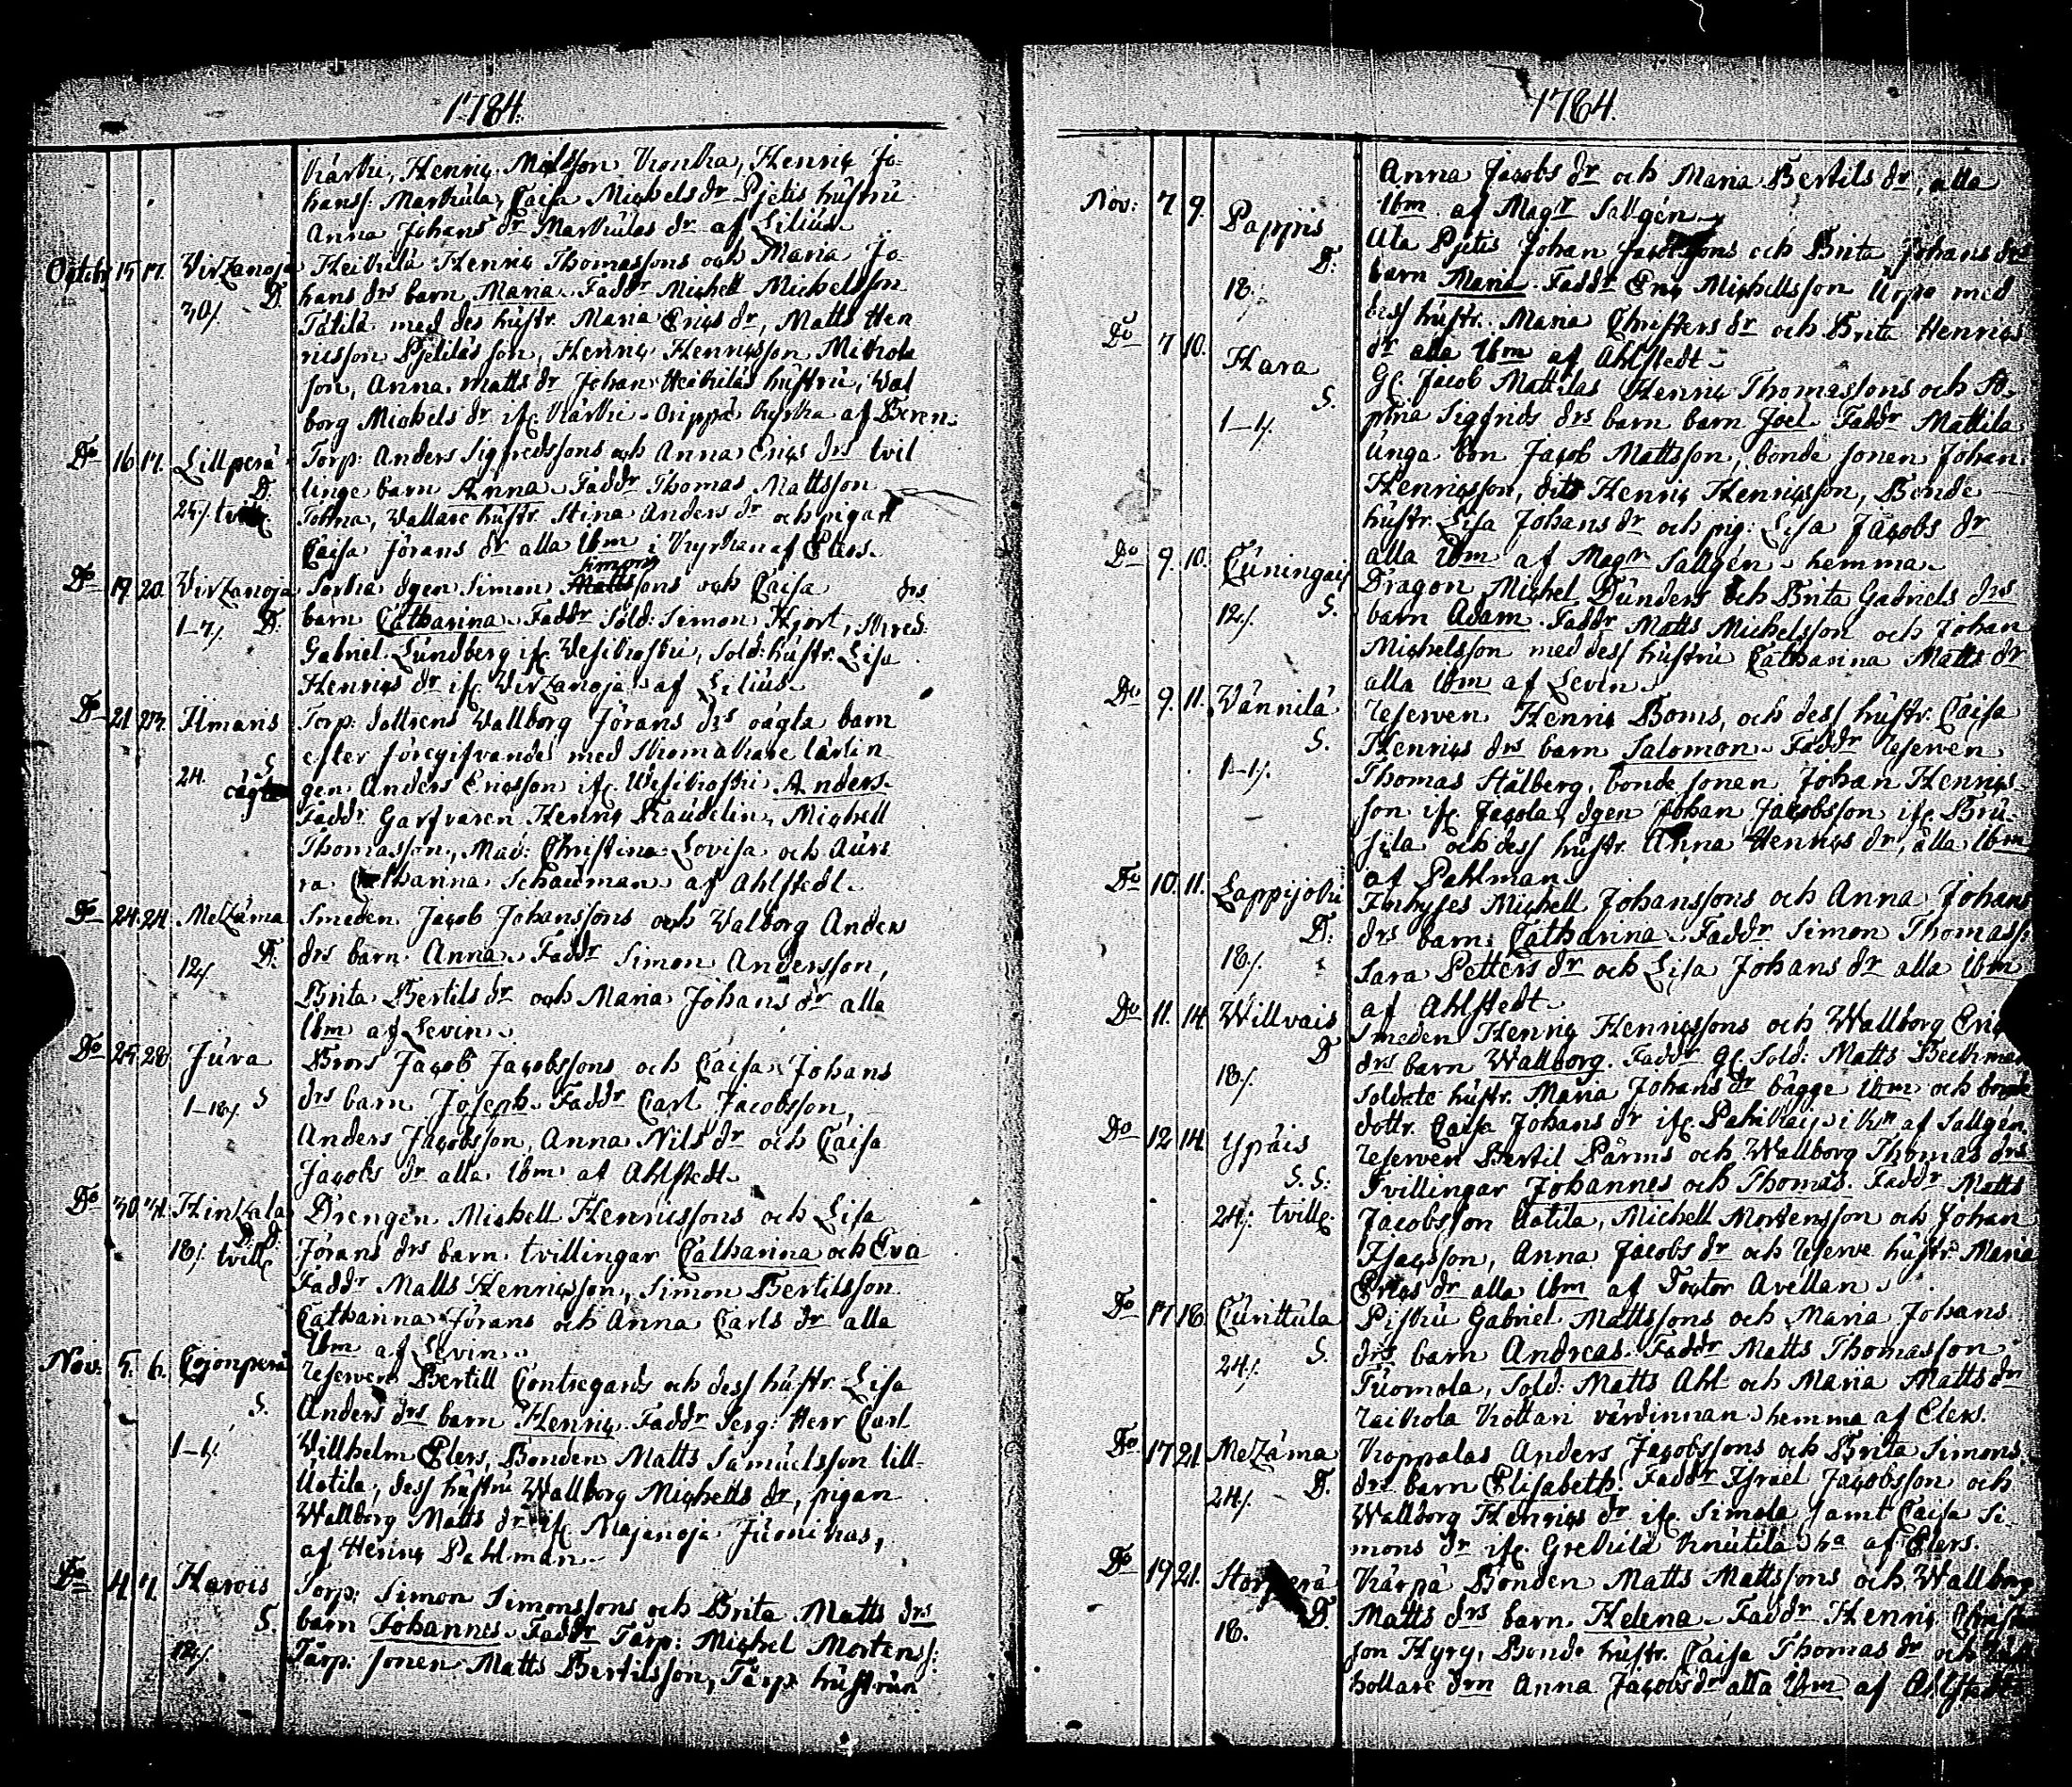 1784.
Kärki, Henric Mickelsson Krouka, Henric Jo-
hanss: Markula, Caisa Michels dr Pjetis hustru
Anna Johans dr Markulas dr af Lilius.
Octob 15 17. Virzanoja Heikilä Henric Thomassons och Maria Jo-
D. hans drs barn Maria. Faddr Michell Michelsson
30/. Tätilä med des hustr. Maria Erics dr, Matts Hen
ricsson Pjetiläs son, Henric Henricsson Mikola
son, Anna Matts dr Johan Heikiläs hustru, Wal
borg Michels dr ifr. Kärki
Do 16 17. Lillperä Torp: Anders Sigfredssons och Anna Erics drs tvil
D. linge barn Anna. Faddr Thomas Mattsson
24/. tvill. Tolma, Wallare hustr. Stina Anders dr och pigan
Caisa Jörans dr alla ibm i kyrkan af Elers.
Simons
Do 19. 20. Virzanoja Sorka dgen Simon Mattssons och Caisa drs
1-7/. D: barn Catharina. Faddr Sold: Simon Hjort, Skred:
Gabriel Lundberg ifr. Vesikoski, Sold: hustr. Lisa
Henrics dr ifr. Virzanoja af Lilius.
Do 21. 23. Ilmaris Torp: dottrens Wallborg Jörans drs oägta barn
S efter föregifvande med Skomakare lärlin
24. oägta gen Anders Ericsson ifr. Vesikoski Anders.
Faddr Garfvaren Henric Fraudelin, Michell
Thomasson, Mad: Christina Lovisa och Auro
ra Catharina Schauman af Ahlstedt.
Do 24. 24. Melzäma Smeden Jacob Johanssons och Walborg Anders
12/. D. drs barn Anna. Faddr Simon Andersson,
Brita Bertils dr och Maria Johans dr alla
ibm af Levin.
Do 25. 28 Juva Brors Jacob Jacobssons och Caisa Johans
1-18/. S drs barn Joseph. Faddr Carl Jacobsson,
Anders Jacobsson, Anna Nils dr och Caisa
Jacobs dr alla ibm af Ahlstedt.
Do 30. 31. Hinzala Drengen Michell Henricssons och Lisa
D. D.
18/. tvill. Jörans drs barn tvillingar Catharina och Eva
Faddr Matts Henricsson, Simon Bertilsson
Catharina Jörans och Anna Carls dr alla
ibm af Levin.
Nov: 5. 6. Cojonperä Reserven Bertill Contregards och dess hustr. Lisa
S. Anders drs barn Henric. Faddr Serg: Herr Carl
1-4/. Willhelm Elers, Bonden Matts Samuelsson lill-
Uotila, dess hustru Wallborg Michells dr, pigan
Wallborg Matts dr ifr. Majanoja Junikas,
af Henric Pahlman.
Do 4 7. Harois Torp: Simon Simonssons och Brita Matts drs
S. barn Johannes. Faddr Torp: Michel Mortenss:
12/. Torp: sonen Matts Bertilsson, Torp hustrun
1784.
Anna Jacobs dr och Maria Bertils dr, alla
ibm af Magr Sallgén.
Nov: 7 9. Pappis Ala Pjetis Johan Jacobssons och Brita Johans drs
D: barn Maria. Faddr Eric Michellsson Urpo med
18/. dess hustr. Maria Christers dr och Brita Henrics
dr alla ibm af Ahlstedt.
Do 7 10. Hara Gl. Jacob Mattilas Henric Thomassons och So-
S. phia Sigfrids drs barn barn Joel. Faddr Mattila
1-4/. unga bon Jacob Mattsson, bonde sonen Johan
Henricsson, dito Henric Henricsson, Bonde
hustr. Lisa Johans dr och pig: Lisa Jacobs dr
alla ibm af Magr Sallgén hemma.
Do 9. 10. Cuningais Dragon Michel Dunders och Brita Gabriels drs
12/. S. barn Adam. Faddr Matts Michelsson och Johan
Michelsson med dess hustru Catharina Matts dr
alla ibm af Levin.
Do 9. 11. Vännilä Reserven Henric Boms, och dess hustr. Caisa
S. Henrics drs barn Salomon. Faddr Reserven
1-1/. Thomas Stålberg, bonde sonen Johan Henrics-
son ifr. Jacola, dgen Johan Jacobsson ifr. Bru-
sila och dess hustr. Anna Henrics dr, alla ibm
af Pahlman.
Do 10. 11. Lappijoki Inhyses Michell Johanssons och Anna Johans
D: drs barn Catharina. Faddr Simon Thomass:
18/. Sara Petters dr och Lisa Johans dr alla ibm
af Ahlstedt.
Do 11. 14. Willvais Smeden Henric Henricssons och Wallborg Erics
D drs barn Wallborg. Faddr Gl. Sold: Matts Beckman
18/. Soldate hustr. Maria Johans dr bägge ibm och bonde
dottr. Caisa Johans dr ifr. Pahikais i kn af Sallgén.
Do 12 14. Ypäis Reserven Bertil Pärms och Wallborg Thomas drs
S. S: Tvillingar Johannes och Thomas. Faddr Matts
24/. tvill. Jacobsson Uotila, Michell Mortensson och Johan
Isacsson, Anna Jacobs dr och Reserve hustr. Maria
Erics dr alla ibm af Doctor Avellan.
Do 17 18. Cunittula Piskü Gabriel Mattssons och Maria Johans
24/. S. drs barn Andreas. Faddr Matts Thomasson
Tuomola, Sold: Matts Ahl och Maria Matts dr
Raikola Kottari värdinnan hemma af Elers.
Do 17 21. Melzäma Koppalas Anders Jacobssons och Brita Simons
24/. D. drs barn Elisabeth. Faddr Israel Jacobsson och
Wallborg Henrics dr ifr. Simola samt Caisa Si-
mons dr ifr. Grekilä Knutila ha af Elers.
Do 19 21. Storperä Kärpä Bonden Matts Mattssons och Wallborg
18. D. Matts drs barn Helena. Faddr Henric Christers
son Hyry, Bonde hustr. Caisa Thomas dr och
hollare drn Anna Jacobs dr alla ibm af Ahlstedt